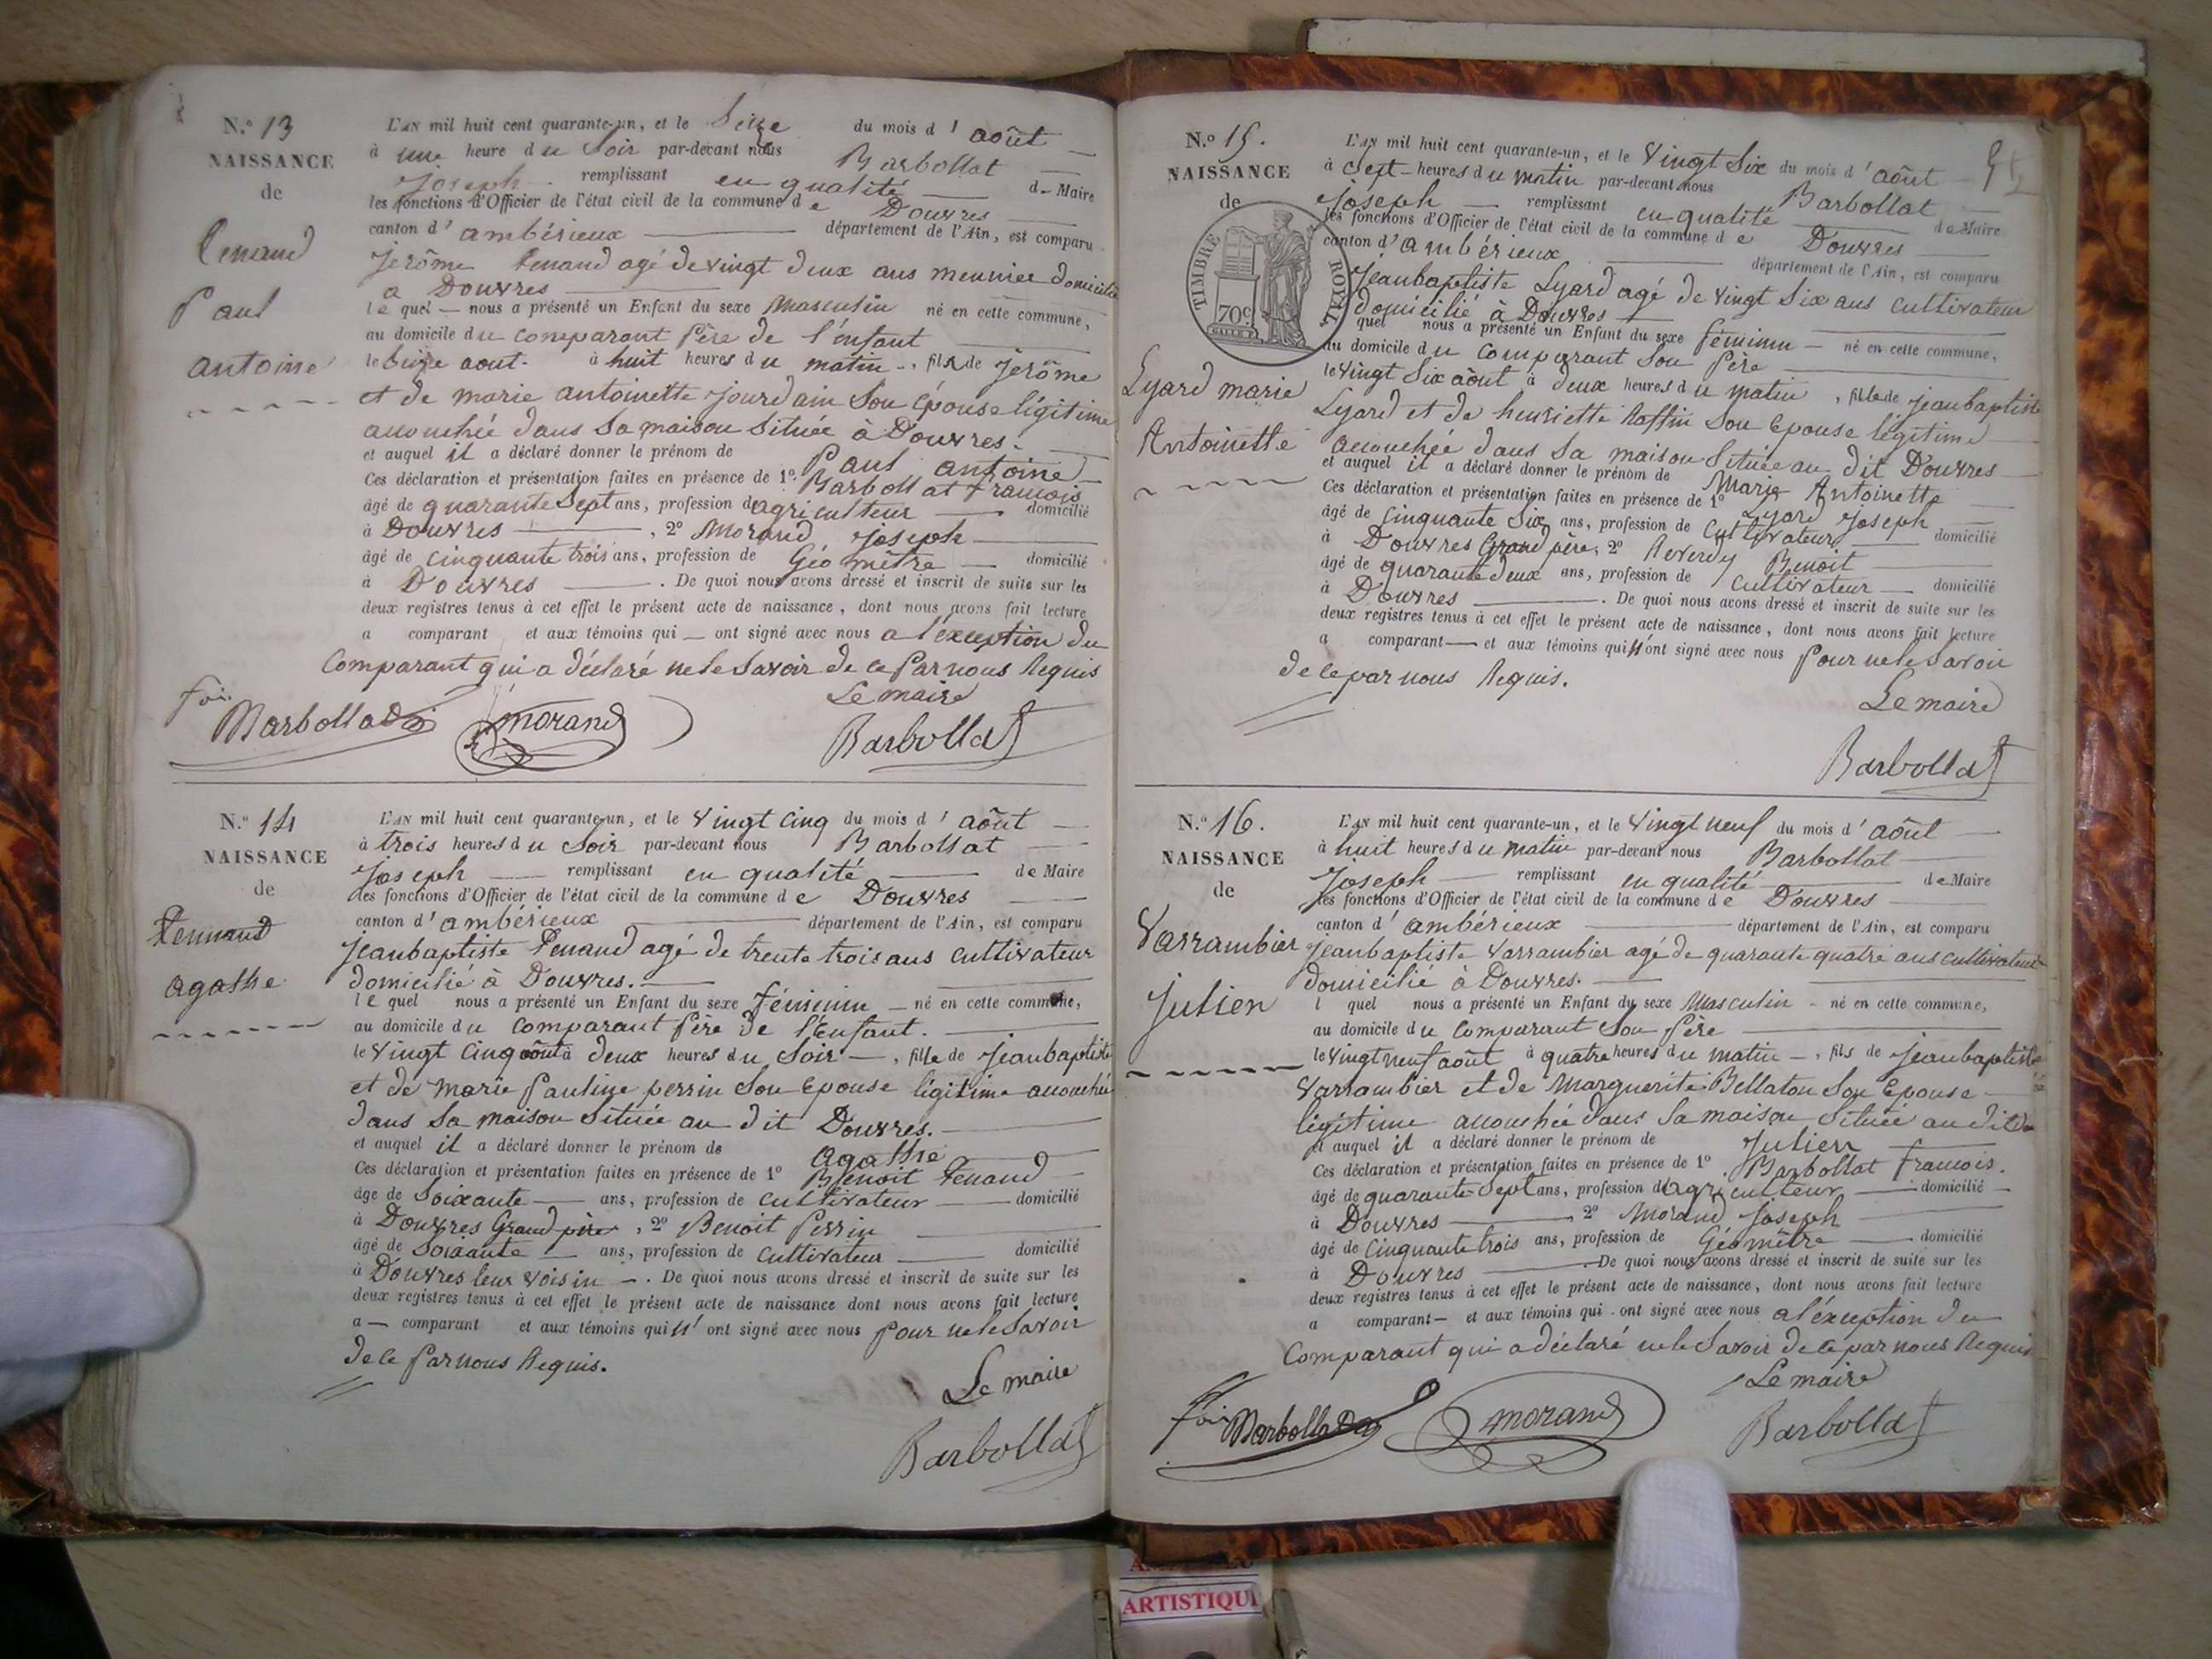 N.º 13
NAISSANCE
de
Penand
Paul
antoine
L'AN mil huit cent quarante-un, et le Seize du mois d'août
à une heure du Soir par-devant nous Barbollat
Joseph remplissant en qualité de Maire
les fonctions d'Officier de l'état civil de la commune de Douvres
canton d'ambérieux département de l'Ain, est comparu
Jerôme Penand agé de vingt deux ans meunier domicilié
a Douvres
le quel nous a présenté un Enfant du sexe Masculin né en cette commune,
au domicile du comparant Père de l'enfant
le Seize aout à huit heures du matin, fils de Jerôme
et de marie antoinette Jourdain Son épouse légitime
accouchée dans Sa maison Située à Douvres.
et auquel il a déclaré donner le prénom de Paul antoine
Ces déclaration et présentation faites en présence de 1º Barbollat francois
âgé de quarante Sept ans, profession d'agriculteur domicilié
à Douvres, 2º Morand Joseph
âgé de cinquante trois ans, profession de Géomêtre domicilié
à Douvres. De quoi nous avons dressé et inscrit de suite sur les
deux registres tenus à cet effet le présent acte de naissance, dont nous avons fait lecture
a comparant et aux témoins qui ont signé avec nous a l'exception du
Comparant qui a déclaré ne le Savoir de ce Par nous Requis
Le maire
Barbollat morand Barbollat
N.º 14
NAISSANCE
de
Pennand
agathe
L'AN mil huit cent quarante-un, et le Vingt Cinq du mois d'août
à trois heures du Soir par-devant nous Barbollat
Joseph remplissant en qualité de Maire
les fonctions d'Officier de l'état civil de la commune de Douvres
canton d'ambérieux département de l'Ain, est comparu
Jeanbaptiste Penand agé de trente trois ans cultivateur
domicilié à Douvres.
le quel nous a présenté un Enfant du sexe féminin né en cette commune,
au domicile du comparant Père de l'Enfant.
le Vingt Cinq août à deux heures du Soir, fille de Jeanbaptiste
et de Marie Pauline perrin Son Epouse légitime accouchée
dans Sa maison Située au dit Douvres.
et auquel il a déclaré donner le prénom de agathe
Ces déclaration et présentation faites en présence de 1º Benoit Penand
âgé de Soixante ans, profession de cultivateur domicilié
à Douvres Grand père, 2º Benoit Perrin
âgé de Soixante ans, profession de Cultivateur domicilié
à Douvres leur voisin. De quoi nous avons dressé et inscrit de suite sur les
deux registres tenus à cet effet le présent acte de naissance dont nous avons fait lecture
a comparant et aux témoins qui n'ont signé avec nous Pour ne le Savoir
de ce Par nous Requis.
Le maire
Barbollat
N.º 15.
NAISSANCE
de
TIMBRE ROYAL
70c
Lyard marie
Antoinette
L'AN mil huit cent quarante-un, et le Vingt Six du mois d'août
à Sept heures du matin par-devant nous Barbollat
Joseph remplissant en qualité de Maire
les fonctions d'Officier de l'état civil de la commune de Douvres
canton d'ambérieux département de l'Ain, est comparu
Jeanbaptiste Lyard agé de vingt Six ans cultivateur
domicilié à Douvres
quel nous a présenté un Enfant du sexe féminin né en cette commune,
au domicile du comparant Son Père
le Vingt Six août à deux heures du matin, fille de Jeanbaptiste
Lyard et de henriette Raffin Son Epouse légitime
accouchée dans Sa maison Située au dit Douvres
et auquel il a déclaré donner le prénom de Marie Antoinette
Ces déclaration et présentation faites en présence de 1º Lyard Joseph
âgé de Cinquante Six ans, profession de Cultivateur domicilié
à Douvres Grand père, 2º Reverdy Benoit
âgé de quarante deux ans, profession de Cultivateur domicilié
à Douvres. De quoi nous avons dressé et inscrit de suite sur les
deux registres tenus à cet effet le présent acte de naissance, dont nous avons fait lecture
a comparant et aux témoins qui n'ont signé avec nous Pour ne le Savoir
de ce par nous Requis.
Le maire
Barbollat
N.º 16.
NAISSANCE
de
Varrambier
Julien
L'AN mil huit cent quarante-un, et le Vingt neuf du mois d'août
à huit heures du matin par-devant nous Barbollat
Joseph remplissant en qualité de Maire
les fonctions d'Officier de l'état civil de la commune de Douvres
canton d'ambérieux département de l'Ain, est comparu
Jeanbaptiste Varrambier agé de quarante quatre ans cultivateur
domicilié à Douvres.
l quel nous a présenté un Enfant du sexe Masculin né en cette commune,
au domicile du comparant Son Père
le vingt neuf août à quatre heures du matin, fils de Jeanbaptiste
Varrambier et de Marguerite Bellaton Son Epouse
légitime accouchée dans Sa maison Située au dit
et auquel il a déclaré donner le prénom de Julien
Ces déclaration et présentation faites en présence de 1º Barbollat francois.
âgé de quarante Sept ans, profession d'agriculteur domicilié
à Douvres 2º Morand Joseph
âgé de Cinquante trois ans, profession de Géomêtre domicilié
à Douvres De quoi nous avons dressé et inscrit de suite sur les
deux registres tenus à cet effet le présent acte de naissance, dont nous avons fait lecture
a comparant et aux témoins qui ont signé avec nous a l'éxception du
Comparant qui a déclaré ne le Savoir de ce par nous Requis
Le maire
Barbollat morand Barbollat
ARTISTIQU